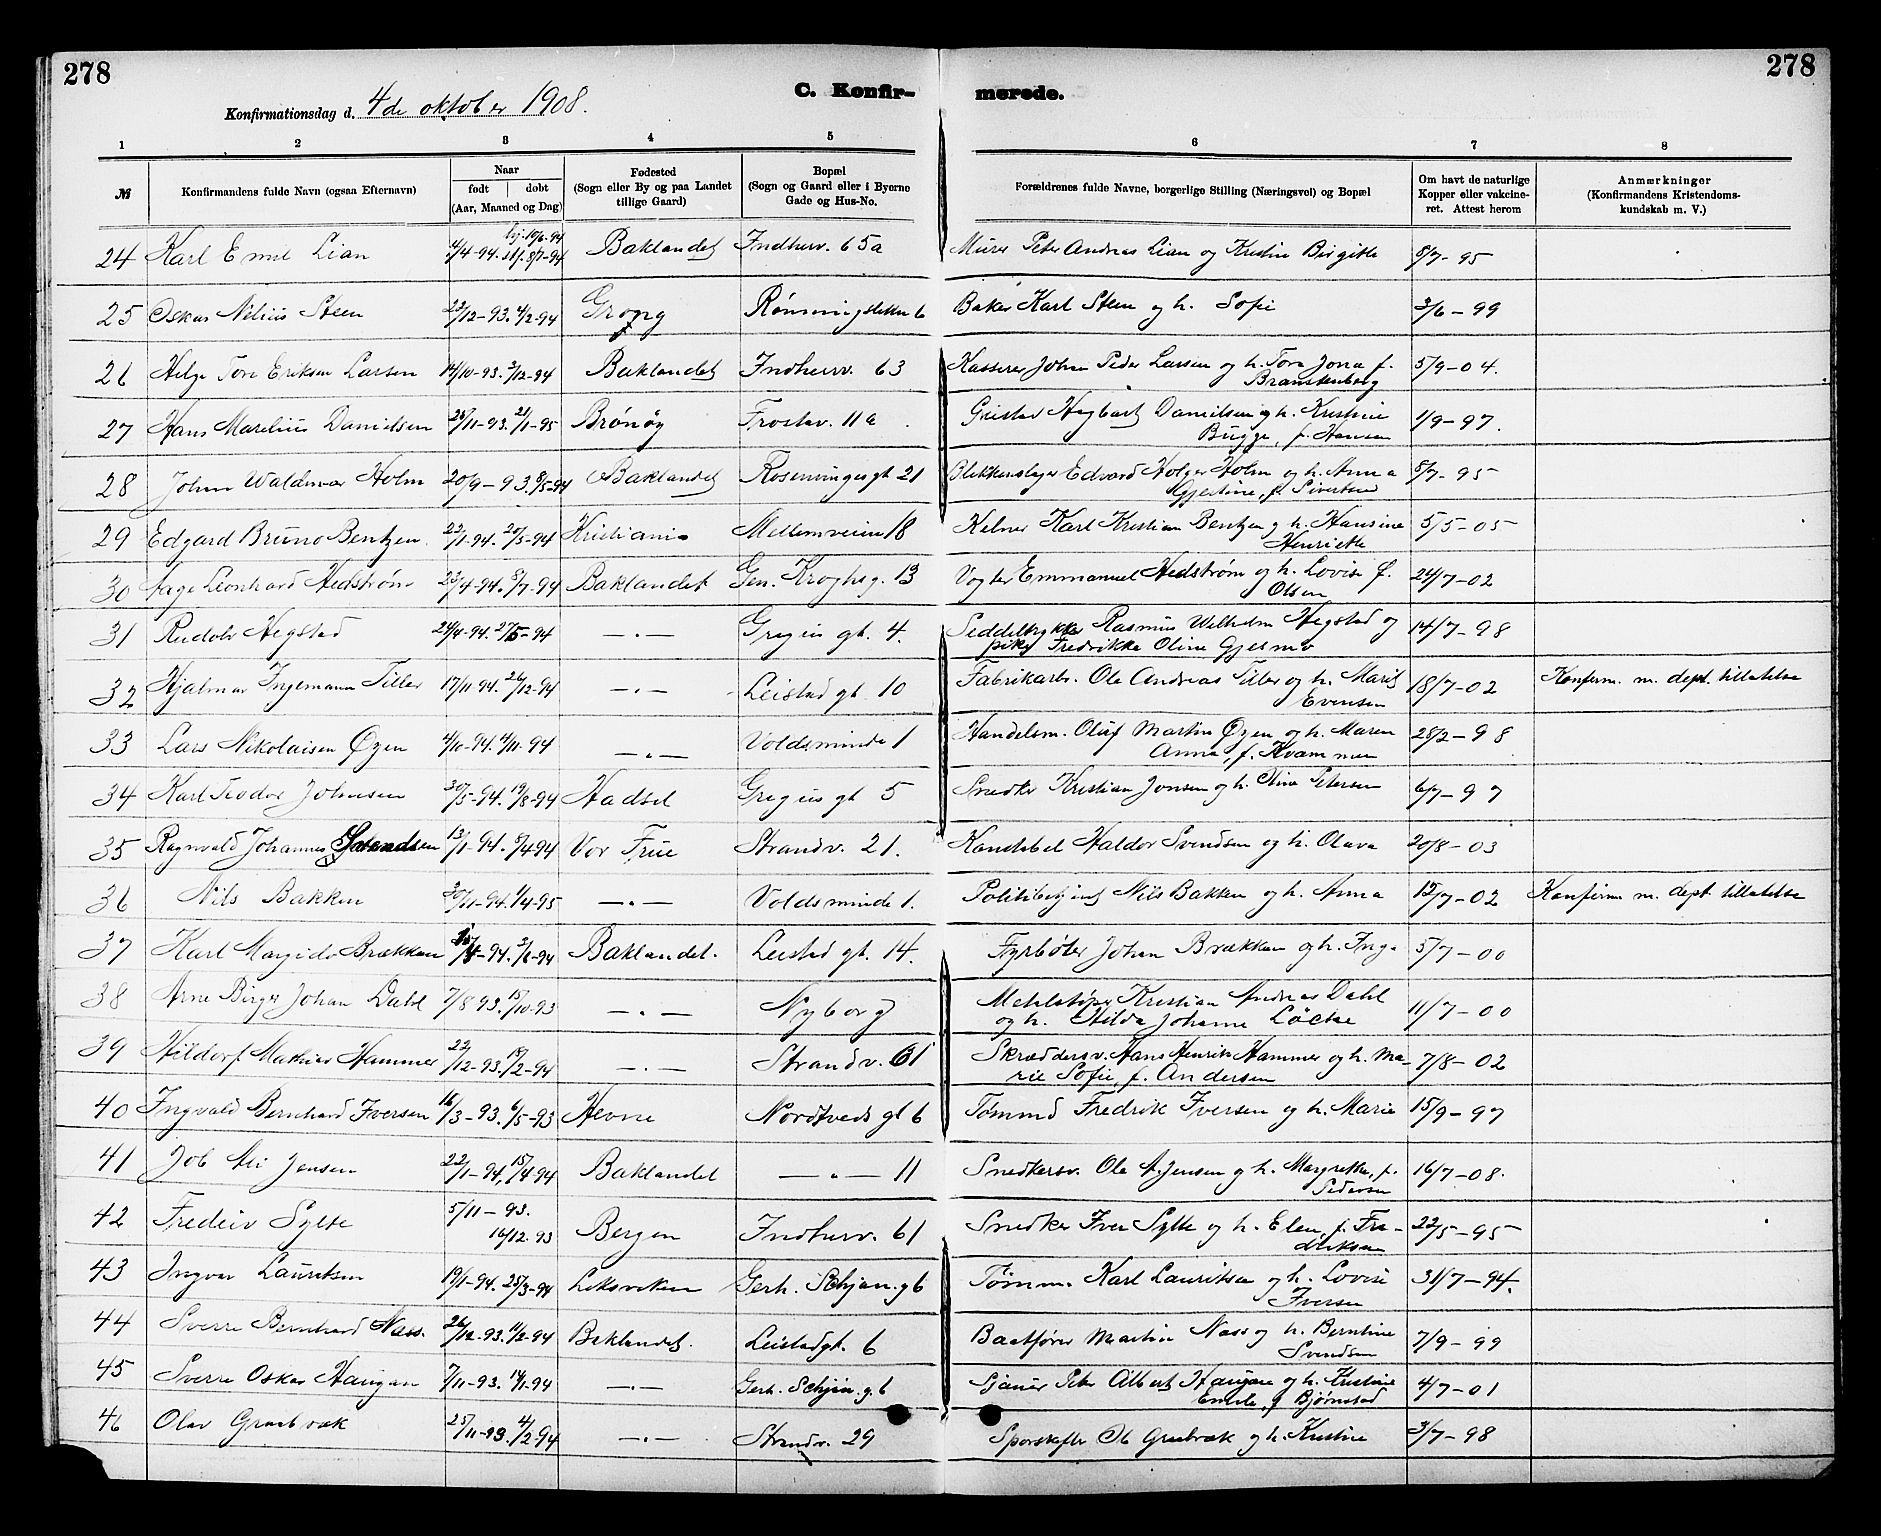 278
278
C. Konfir- merede.
Konfirmationsdag d. 4de oktober 1908.
1 2 3 4 5 6 7 8
№ Konfirmandens fulde Navn (ogsaa Efternavn) Naar født døbt (Aar, Maaned og Dag) Fødested (Sogn eller By og paa Landet tillige Gaard) Bopæl (Sogn og Gaard eller i Byerne Gade og Hus-No.) Forældrenes fulde Navne, borgerlige Stilling (Næringsvei) og Bopæl Om havt de naturlige Kopper eller vakcineret. Attest herom Anmærkninger (Konfirmandens Kristendomskundskab m. V.)
24 Karl Emil Lian 4/4-94. hj. 19/6-94 st. 8/7-94 Baklandet Indherv. 65a Murer Peter Andreas Lian og Kristine Birgitte 8/7-95
25 Oskar Nilius Steen 23/12-93. 4/2-94 Grong Rønningsletten 6 Baker Karl Steen og h. Sofie 3/6-99
26 Helge Tore Eriksen Larsen 14/10-93. 3/12-94 Baklandet Indherv. 63 Kasserer Johan Peder Larsen og h. Tora Jona f. 5/9-04.
Branskenberg
27 Hans Marelius Danielsen 26/11-93. 21/1-95 Brønøy Frostav. 11a Gustav Hegbart Danielsen og h. Kristine 1/9-97.
Bugge, f. Hansen
28 Johan Waldmar Holm 20/9-93. 8/5-94 Baklandet Rosenvinges gt 21 Blikkenslager Edvard Holger Holm og h. Anna 8/7-95
Gjestine, f. Sivertsen
29 Edgard Bruno Bentzen. 22/1-94. 20/5-94 Kristiania Mellemveien 18 Kelner Karl Kristian Bentzen og h. Hansine 5/5-05
Henriette
30 Aage Leonhard Hedstrøm 23/4-94. 8/7-94 Baklandet Gen. Kroghsg. 13 Vogter Emmanuel Hedstrøm og h. Lovise f. 24/7-02
Olsen
31 Rudolv Hegstad 24/4-94. 27/5-94 —„— Gregus gt. 4. Seddeltrykker Rasmus Wilhelm Hegstad og 14/7-98
pike Fredrikke Oline Gjesmo
32 Hjalmar Ingemann Tiller 17/11-94. 26/12-94 —„— Leistad gt. 10 Fabrikarb. Ole Andreas Tiller og h. Marit 18/7-02 Konfirm. m. dept. tillatelse
Evensen
33 Lars Nikolaisen Øyen 4/10-94. 4/11-94 —„— Voldsminde 1 Handelsm. Oluf Martin Øyen og h. Maren 28/2-98
Anna, f. Kvammen
34 Karl Teodor Johnsen 30/5-94. 19/8-94 Hadsel Gregus gt 5 Snedker Kristian Jonsen og h. Oline Petersen 6/7-97
35 Ragnvald Johannes Svendsen 13/1-94. 8/4-94 Vor Frue Strandv. 21. Konstabel Haldor Svendsen og h. Olava 20/8-03
36 Nils Bakken 30/11-94. 1/4-95 —„— Voldsminde 1. Politibetjent Nils Bakken og h. Anna 15/7-02 Konfirm. m. dept. tillatelse
37 Karl Margido Brækken 15/4-94. 3/6-94 Baklandet. Leistad gt. 14. Fyrbøter Johan Brækken og h. Inga 5/7-00
38 Arne Birger Johan Dahl 7/8-93. 15/10-93 —„— Nyborg Metalstøper Kristian Andreas Dahl 11/7-00
og h. Hilda Johanne Løcke
39 Hildorf Mathias Hammer 22/12-93. 18/2-94 —„— Strandv. 61 Skræddersv. Hans Henrik Hammer og h. Ma- 7/8-02
rie Sofie, f. Andersen
40 Ingvald Bernhard Iversen 16/3-93. 6/5-93 Hevne Nordtveds gt 6 Tømmd Fredrik Iversen og h. Marie 15/9-97
41 Job Ali Jensen 22/1-94. 15/4-94 Baklandet —„— 11 Snedkersv. Ole A. Jensen og h. Margrethe, f. 16/7-08.
Pedersen
42 Fredriv Sylte 5/11-93. Bergen Indherv. 61 Snedker Iver Sylte og h. Elen, f. Fre- 22/5-95
16/12-93 driksen
43 Ingvar Lauritsen 19/1-94. 25/3-94 Leksviken Gerh. Schjøn. g 6 Tømm. Karl Lauritsen og h. Lovise 31/7-94.
Iversen
44 Sverre Bernhard Næss. 26/12-93. 11/2-94 Baklandet. Leistadgt. 6 Baatfører Martin Næss og h. Berntine 7/9-99
Svendsen
45 Sverre Oskar Haugan 7/11-93. 14/1-94 —„— Gerh. Schjøn. g. 6 Sjauer Peter Albert Haugan og h. Kristine 4/7-01
Emelie, f. Bjørnstad
46 Olav Græsbræk 25/11-93. 4/2-94 —„— Strandv. 29 Sporskifter Ole Græsbræk og h. Kristine 3/7-98